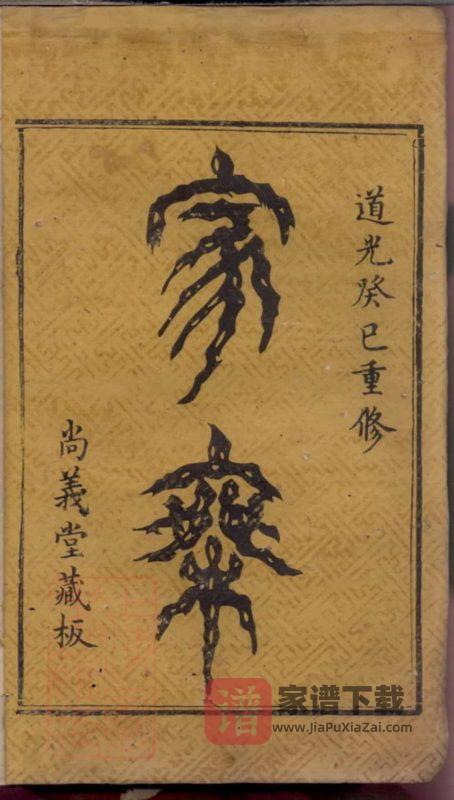 道光癸巳重修
家乘
尚義堂藏板
谱
家谱下载
www.JiaPuXiaZai.com